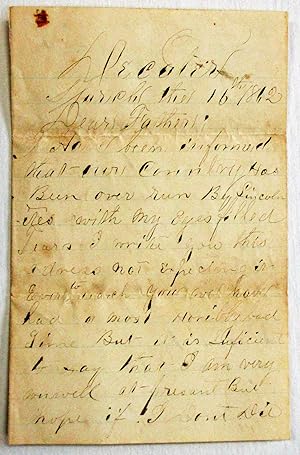 Decatur
March the 16th 1862
Dear Father
I have been informed
that our Country Has
Been over run By Lincoln
ites with My eyes filled
Tears I write you this
not expecting it
Ever reach you we have
had a most Horible bad
Time But it is suficient
to say that I am very
unwell at present But
hope if I dont Die